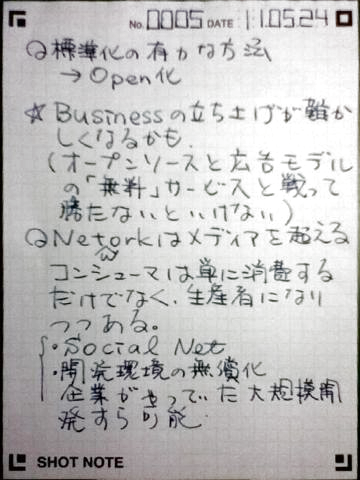 No. 0005 DATE 11.05.24
Q 標準化の有力な方法
→ Open化
☆ Businessの立ち上げが難か
しくなるかも.
(オープンソースと広告モデル
の「無料」サービスと戦って
勝たないといけない)
Q Netorkはメディアを超える
w
コンシューマは単に消費する
だけでなく、生産者になり
つつある。
・Social Net
・開発環境の無償化
企業がやっていた大規模開
発すら可能.
SHOT NOTE